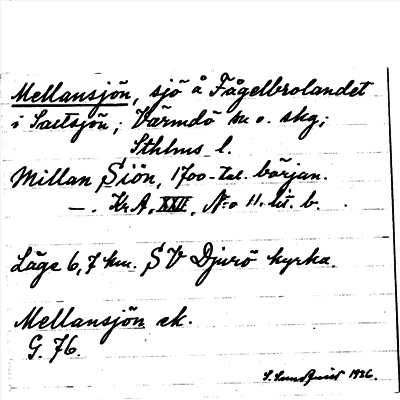 Mellansjön, sjö å Fågelbrolandet
i Saltsjön; Värmdö sn o. skg;
Sthlms l.
Millan Siön, 1700-tal. början.
—. Kr.A, XXII, N:o 11. lit. b.
Läge 6,7 km. SV Djurö kyrka.
Mellansjön ek.
G. 76.
S. Sundqvist 1936.